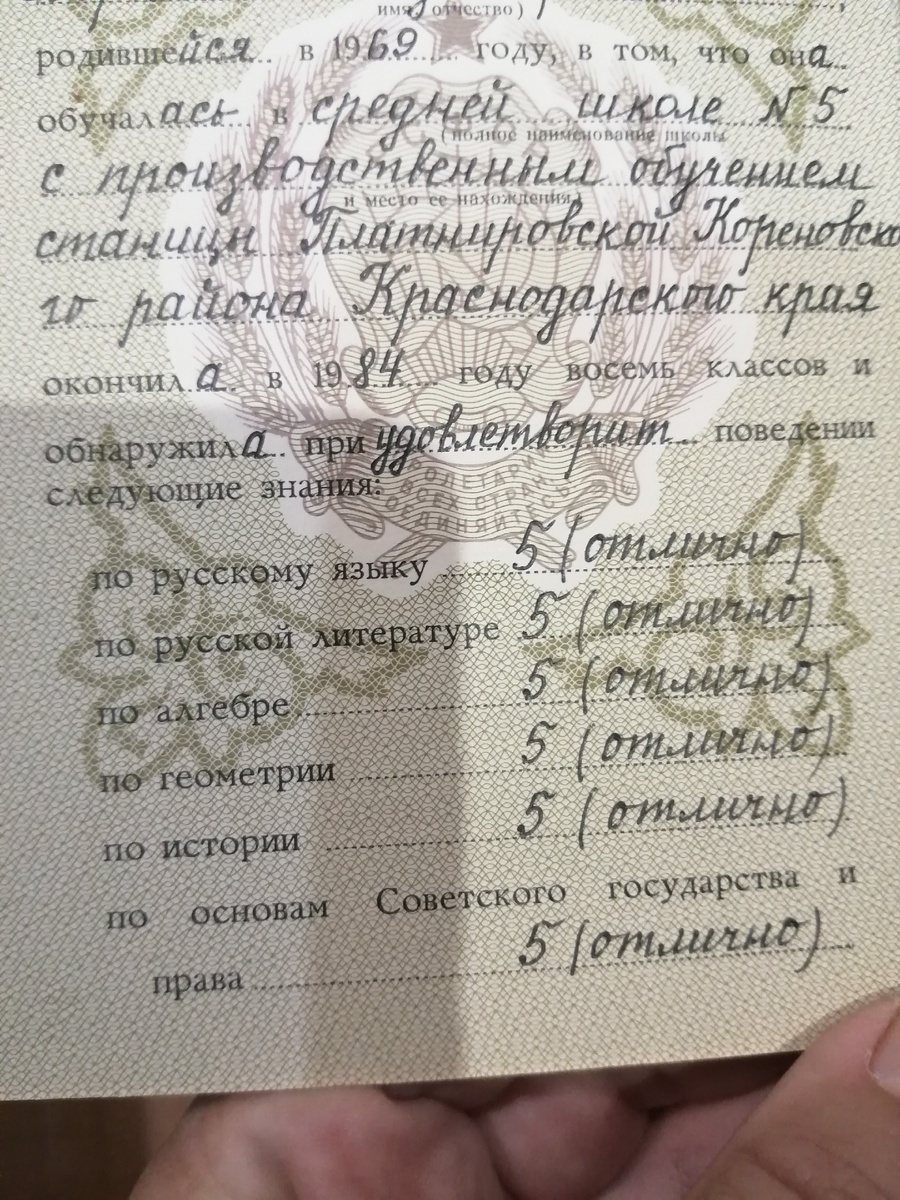 имя, отчество)
родившейся в 1969 году, в том, что она
обучалась в средней школе N 5
(полное наименование школы
с производственным обучением
и место ее нахождения)
станицы Платнировской Кореновско
го района Краснодарского края
окончила в 1984 году восемь классов и
обнаружила при удовлетворит. поведении
следующие знания:
по русскому языку 5 (отлично)
по русской литературе 5 (отлично)
по алгебре 5 (отлично)
по геометрии 5 (отлично)
по истории 5 (отлично)
по основам Советского государства и
права 5 (отлично)